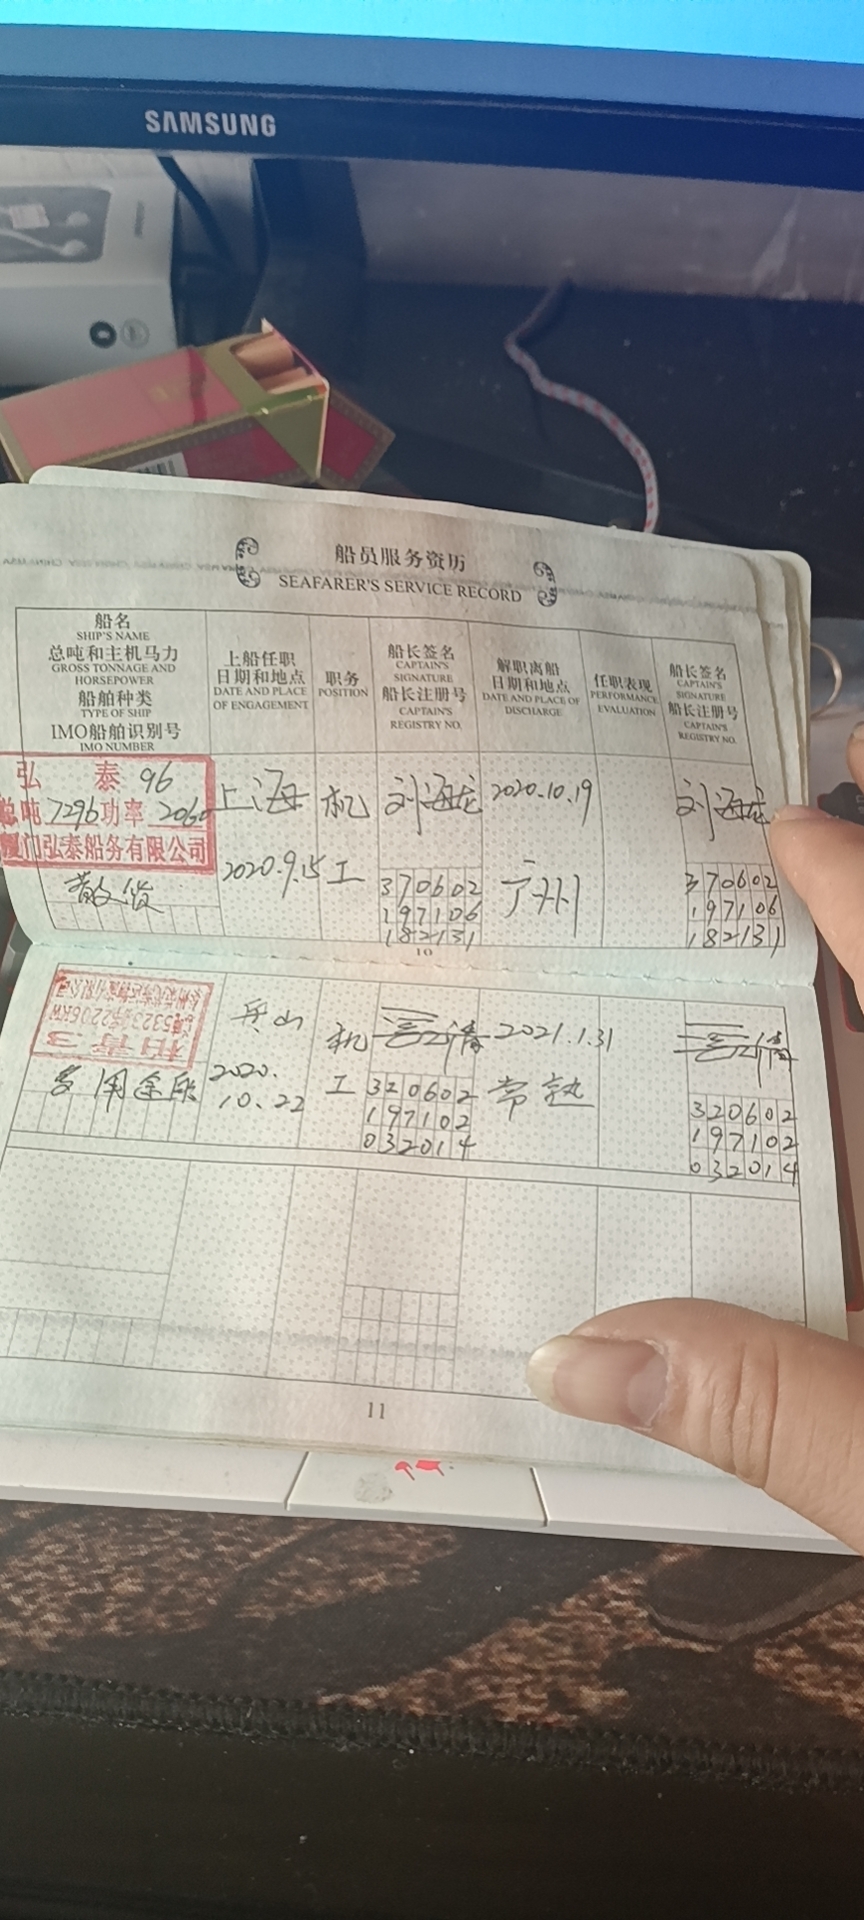 SAMSUNG
船员服务资历
SEAFARER'S SERVICE RECORD
船名
SHIP'S NAME
总吨和主机马力
GROSS TONNAGE AND
HORSEPOWER
船舶种类
TYPE OF SHIP
IMO船舶识别号
IMO NUMBER
上船任职
日期和地点
DATE AND PLACE
OF ENGAGEMENT
职务
POSITION
船长签名
CAPTAIN'S
SIGNATURE
船长注册号
CAPTAIN'S
REGISTRY NO.
解职离船
日期和地点
DATE AND PLACE OF
DISCHARGE
任职表现
PERFORMANCE
EVALUATION
船长签名
CAPTAIN'S
SIGNATURE
船长注册号
CAPTAIN'S
REGISTRY NO.
弘泰 96
总吨 7296 功率 2060
厦门弘泰船务有限公司
散货
上海
2020.9.15
机工
刘海龙
370602
197106
182131
2020.10.19
广州
刘海龙
370602
197106
182131
10
5323
2206KW
多用途船
舟山
2020.
10.22
机工
320602
197102
032014
2021.1.31
常熟
320602
197102
032014
11